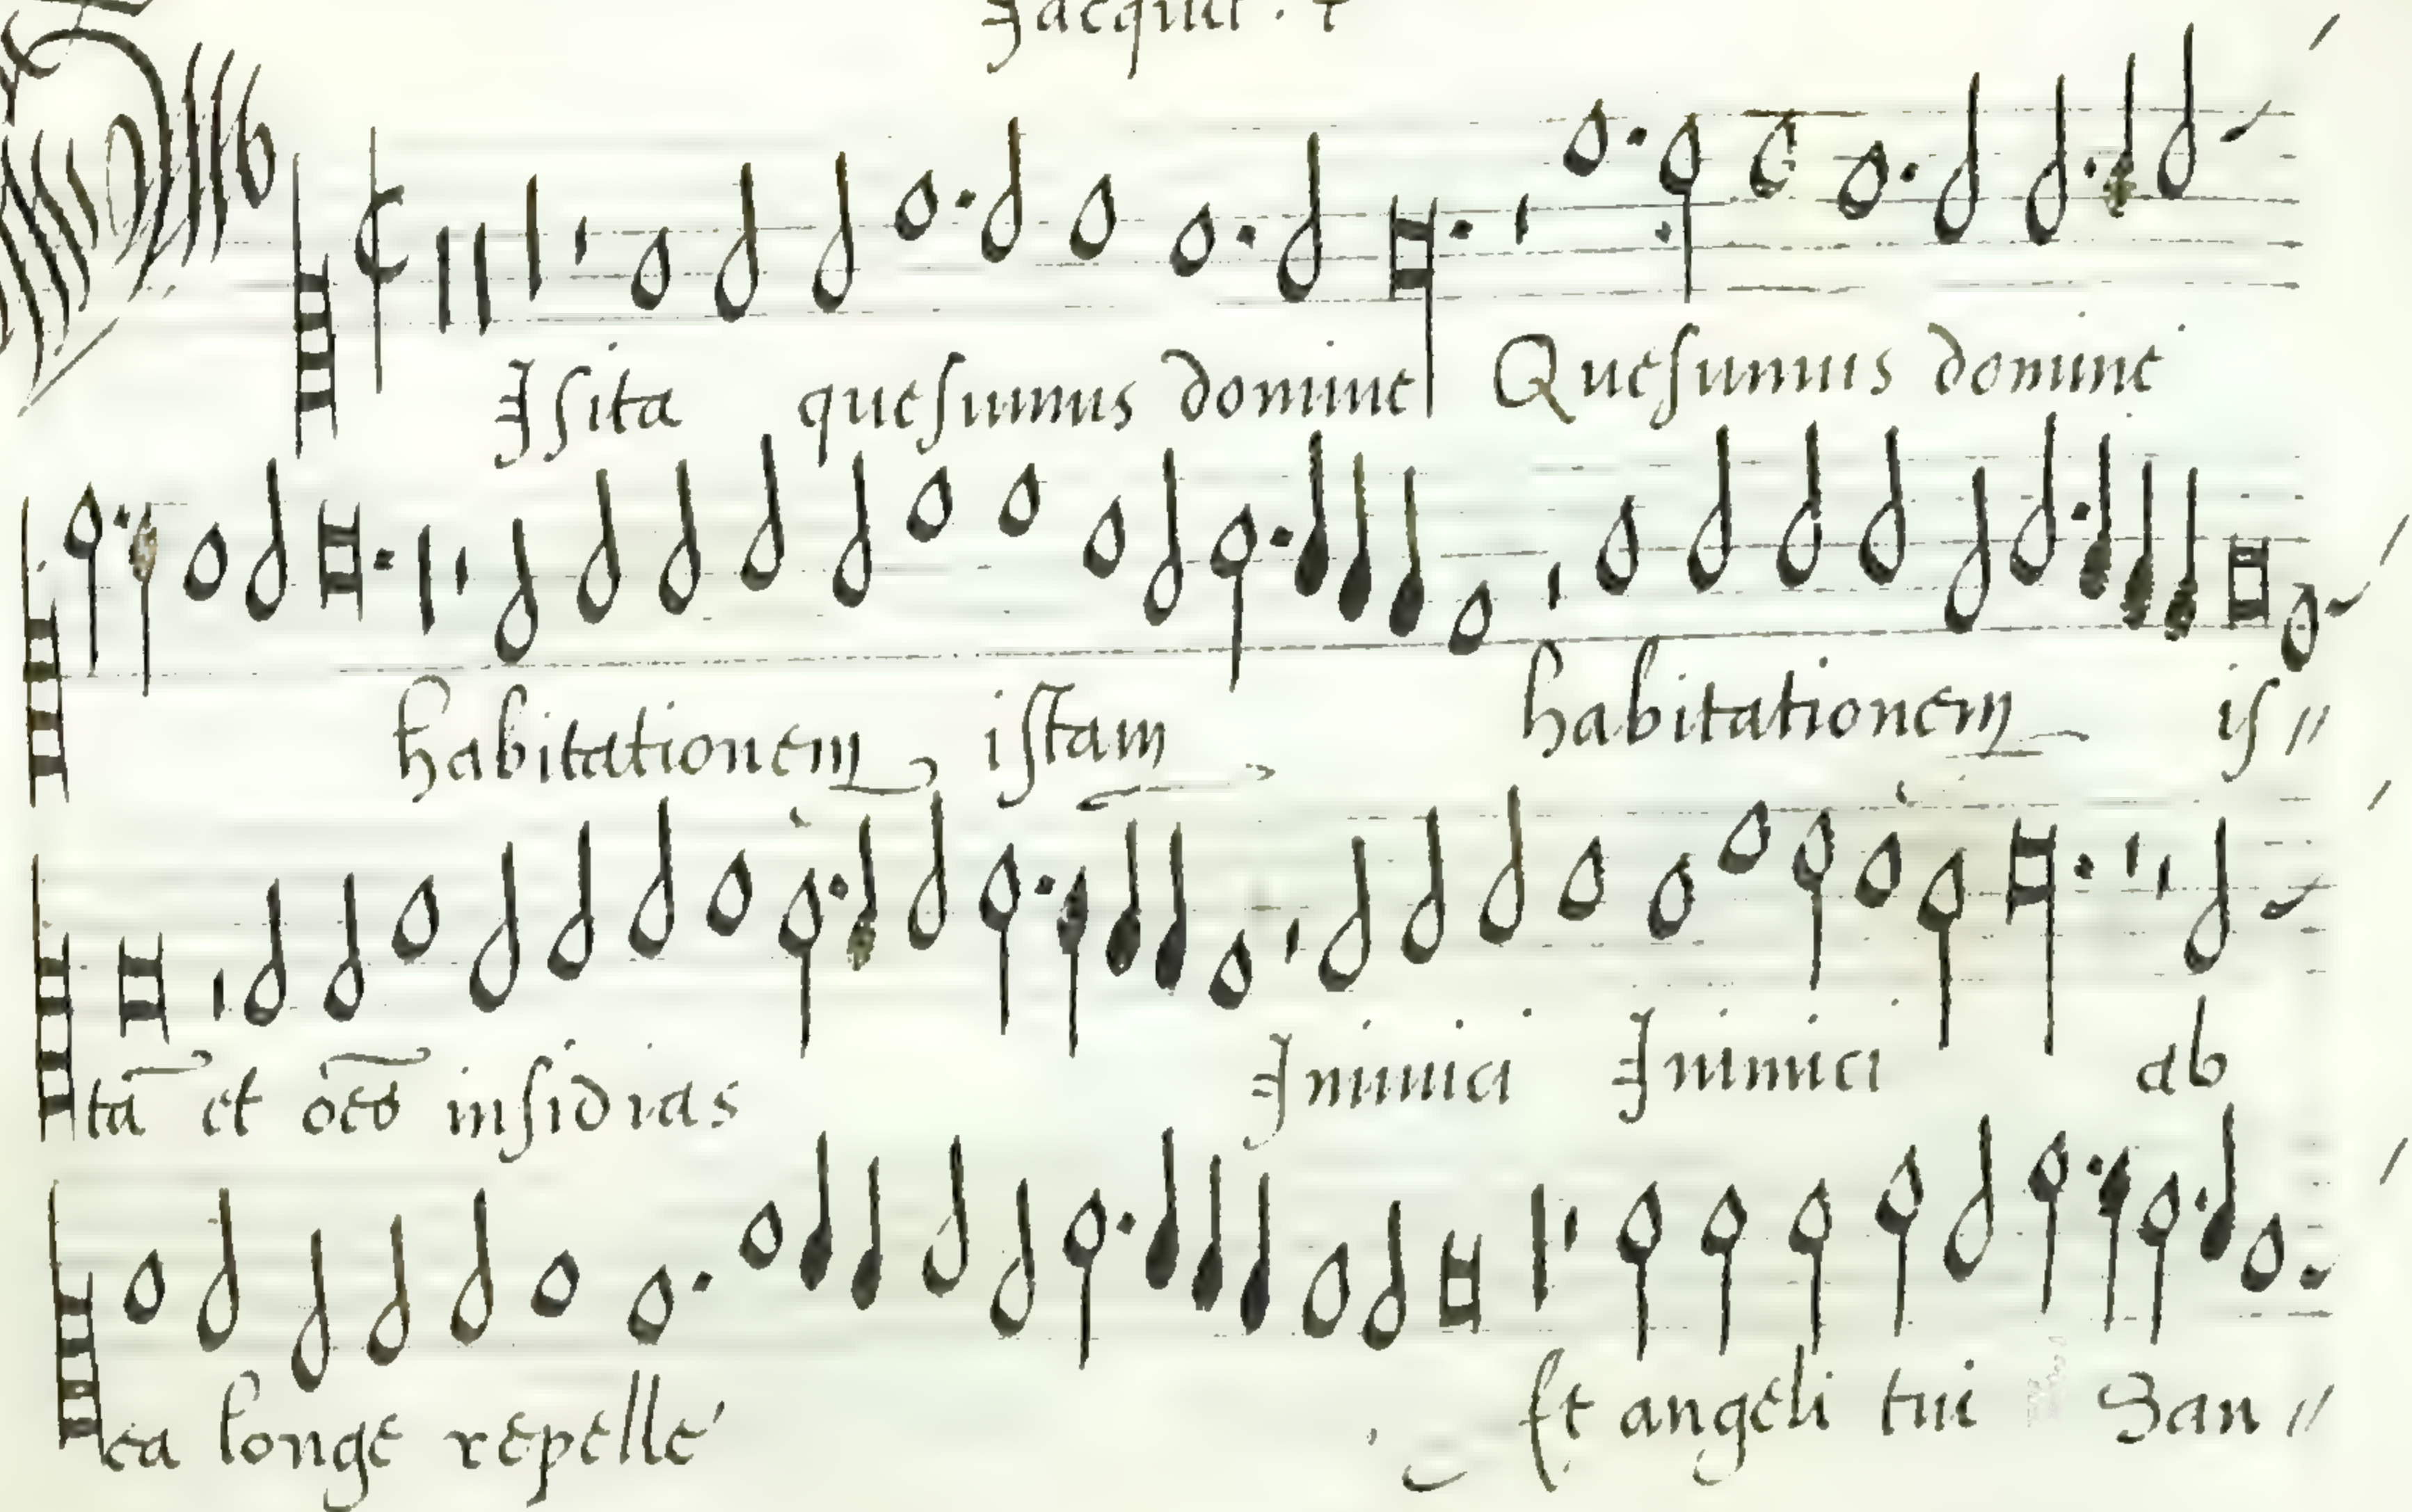 Jacquet.
Isita quesumus domine Quesumus domine
habitationem istam habitationem is〃
tā et oēs insidias Inimici Inimici ab
ea longe repelle Et angeli tui San〃